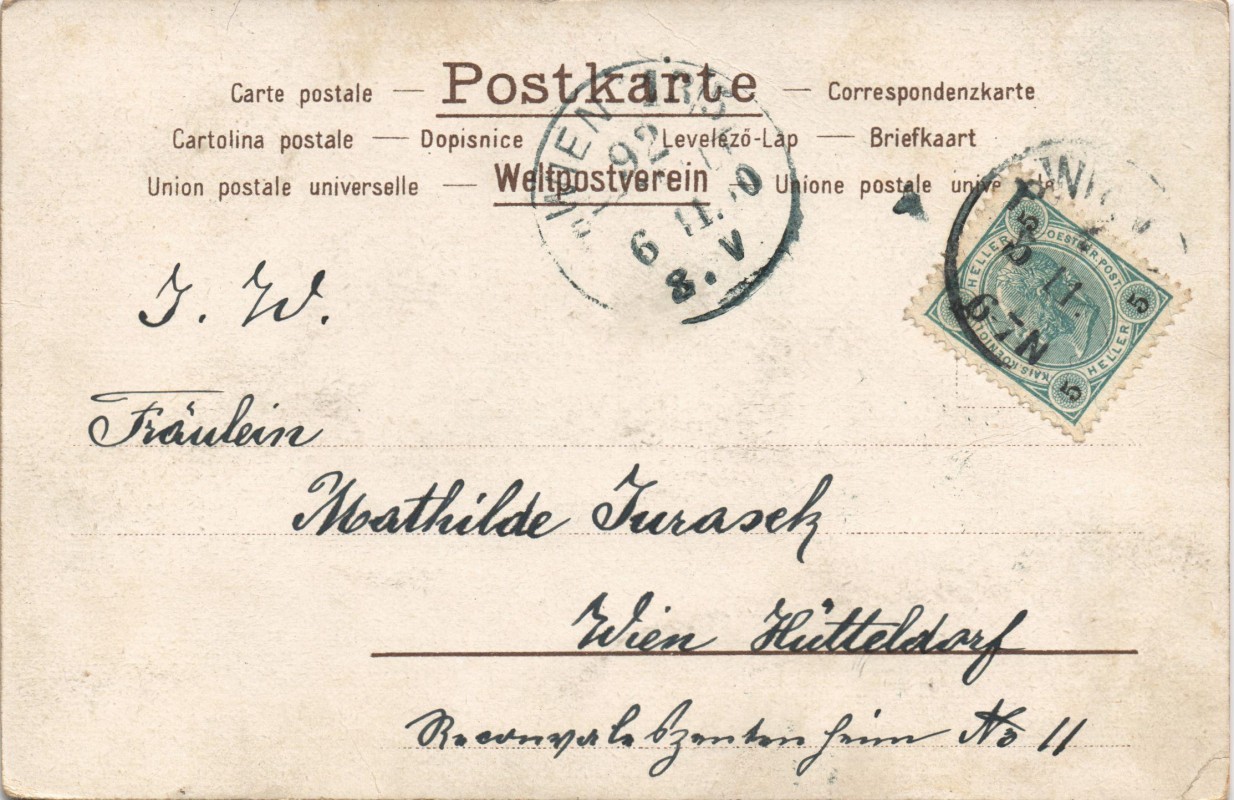 Carte postale — Postkarte — Correspondenzkarte
Cartolina postale — Dopisnice Levelező-Lap — Briefkaart
Union postale universelle — Weltpostverein — Unione postale
WIEN
92
6 11. 0
8. V
WIEN
5 11.
6-7N
OESTERR. POST.
HELLER
HELLER
5
5
5
J. W.
Fräulein
Mathilde Jurasek
Wien Hütteldorf
Reconvaleszentenheim No 11